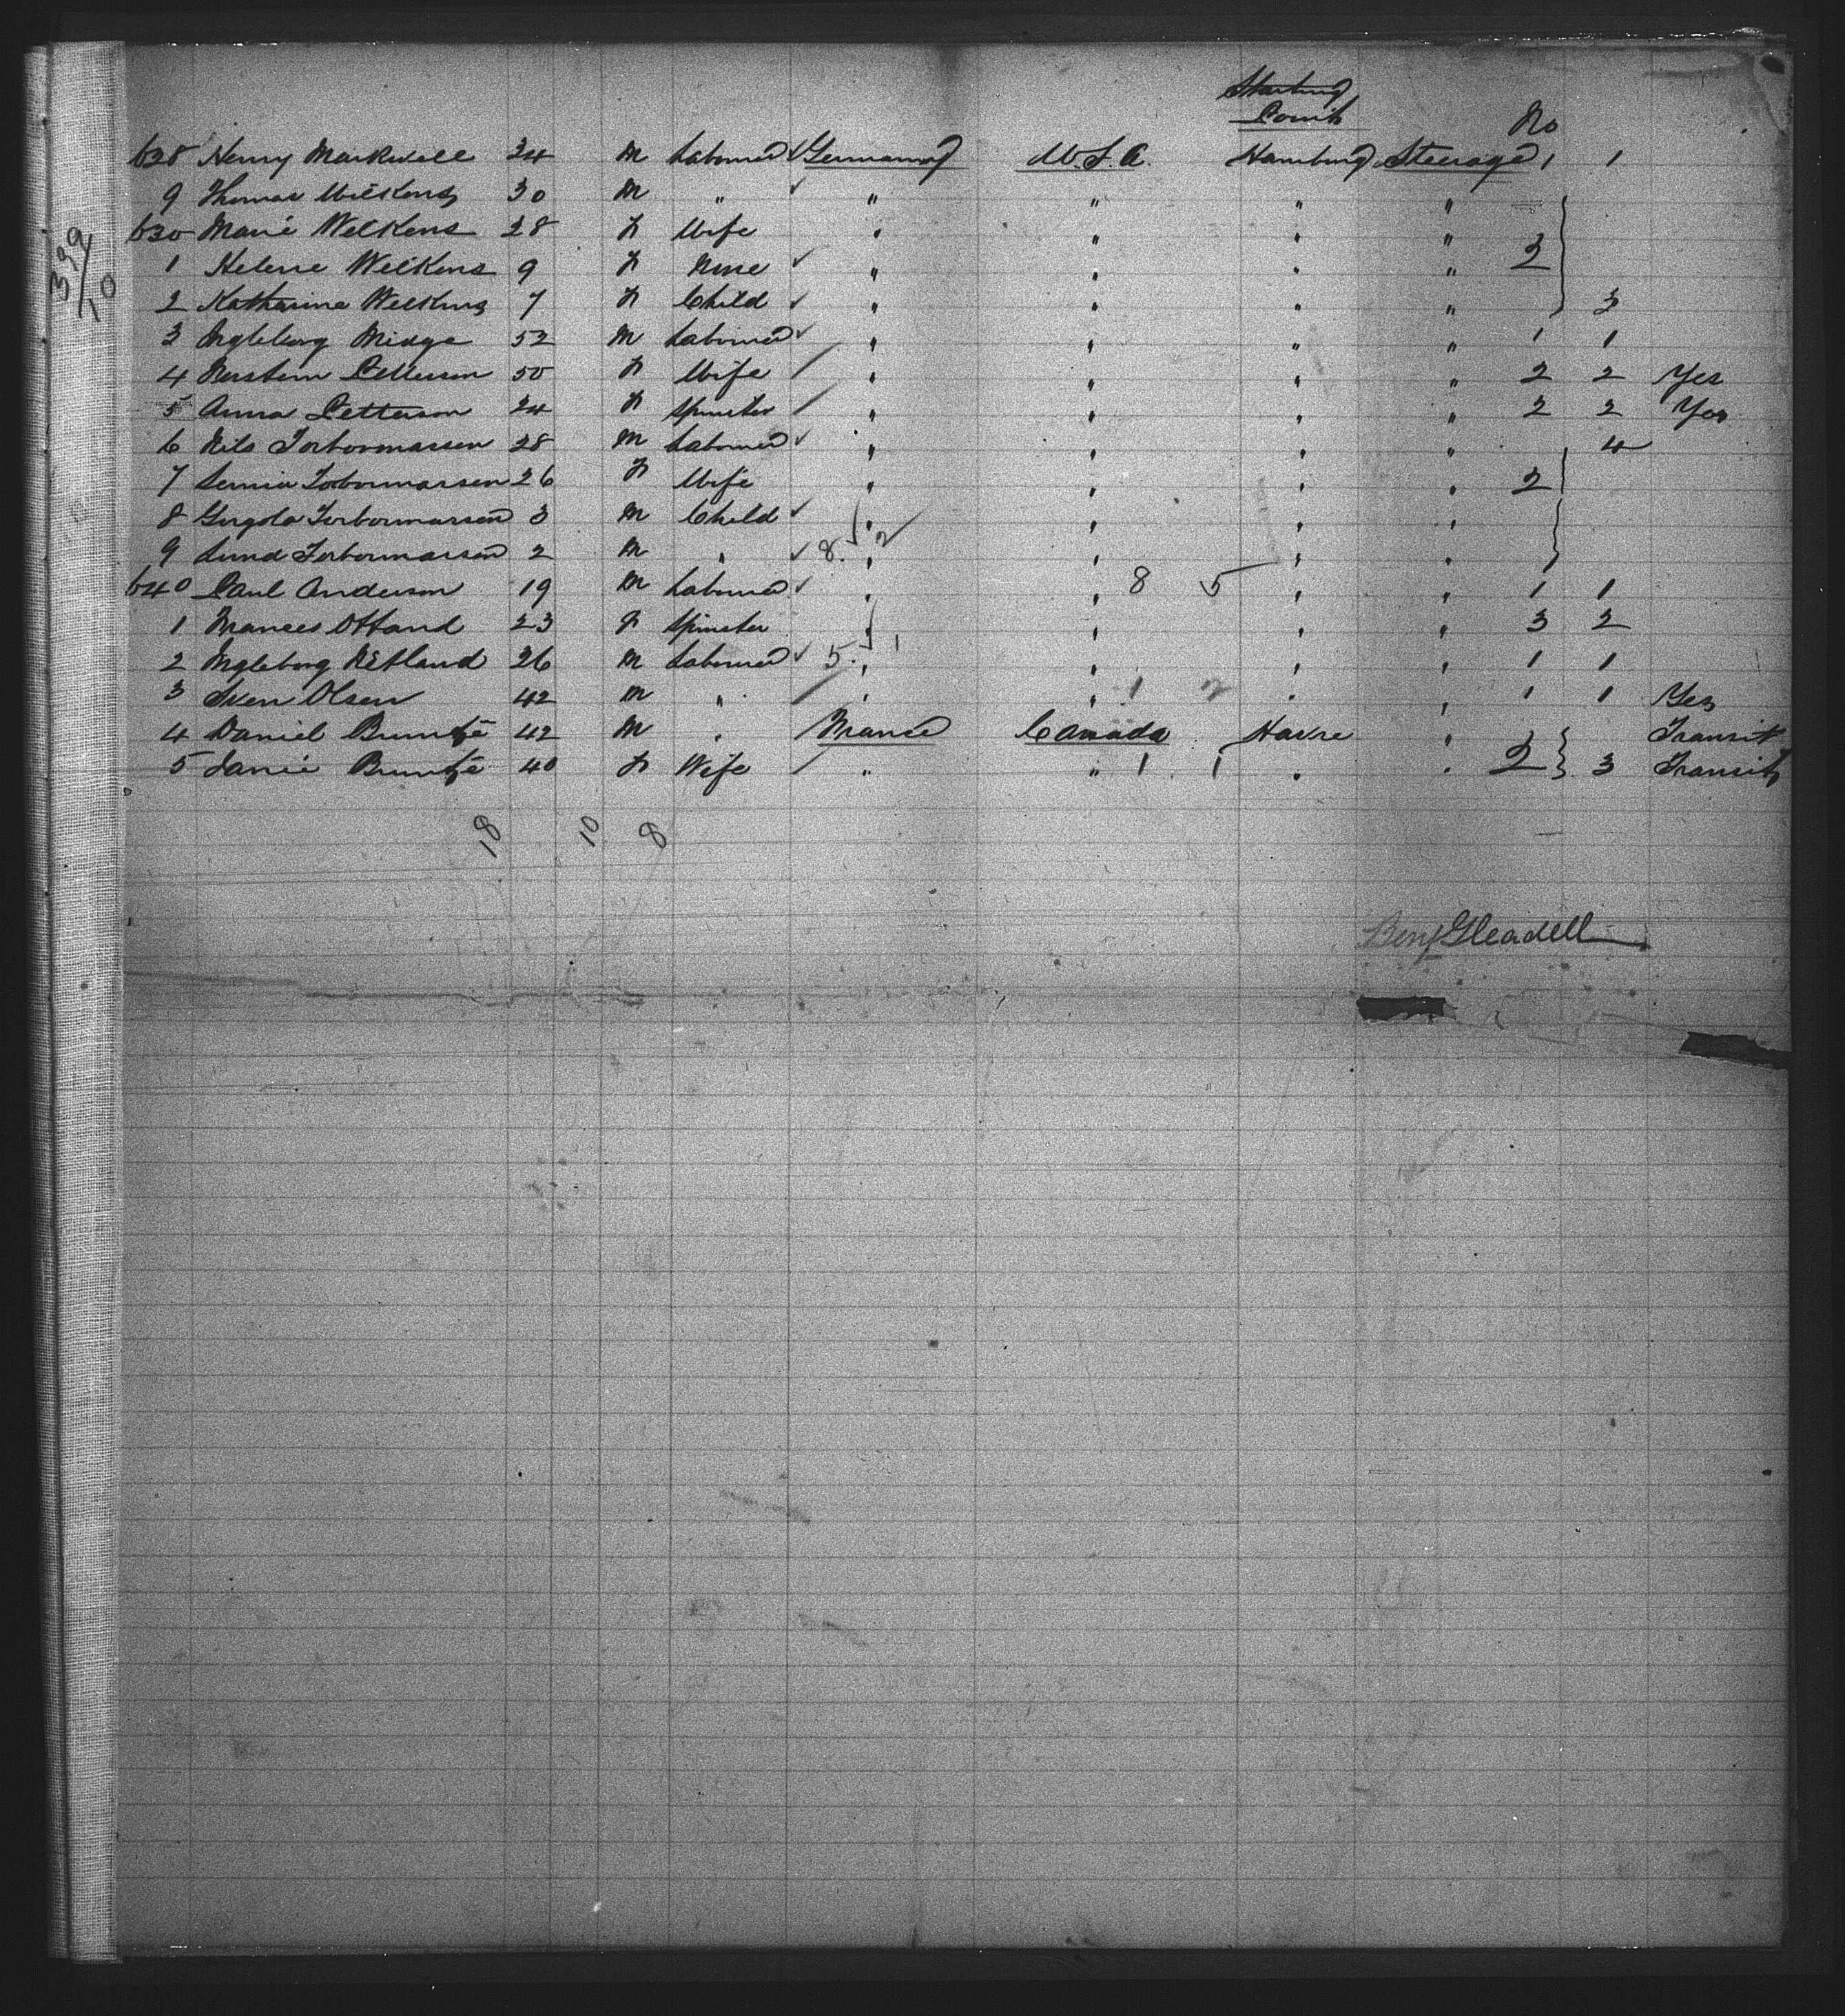 Starting
Point No
628 Henry Markwell 24 M Labourer Germany U.S.A. Hamburg Steerage 1 1
9 Thomas Wilkens 30 M " " " " "
630 Marie Welkens 28 F Wife " " " "
1 Helene Welkens 9 F None " " " " 2
2 Katharine Welkens 7 F Child " " " " 3
3 Ingleborg Midge 52 M Labourer " " " " 1 1
4 Kerstem Petterson 50 F Wife " " " " 2 2 Yes
5 Anna Petterson 24 F Spinster " " " " 2 2 Yes
6 Nils Torbormassen 28 M Labourer " " " " 4
7 Torbormassen 26 F Wife " " " " 2
8 Torbormassen 3 M Child " " " " 2
9 Lund Torbormassen 2 M " 8 " " " "
640 Paul Anderson 19 M Labourer " " 8 5 " " 1 1
1 Frances Ottand 23 F Spinster " " " " 3 2
2 Ingleborg Netland 26 M Labourer 5 " 1 " " " 1 1
3 Sven Olsen 42 M " " " 1 2 " " 1 1 Yes
4 Daniel 42 M " France Canada Havre " Transit
5 Janie 40 F Wife " " 1 1 " " 2 3 Transit
399/10
18 10 8
Benj Gleadell